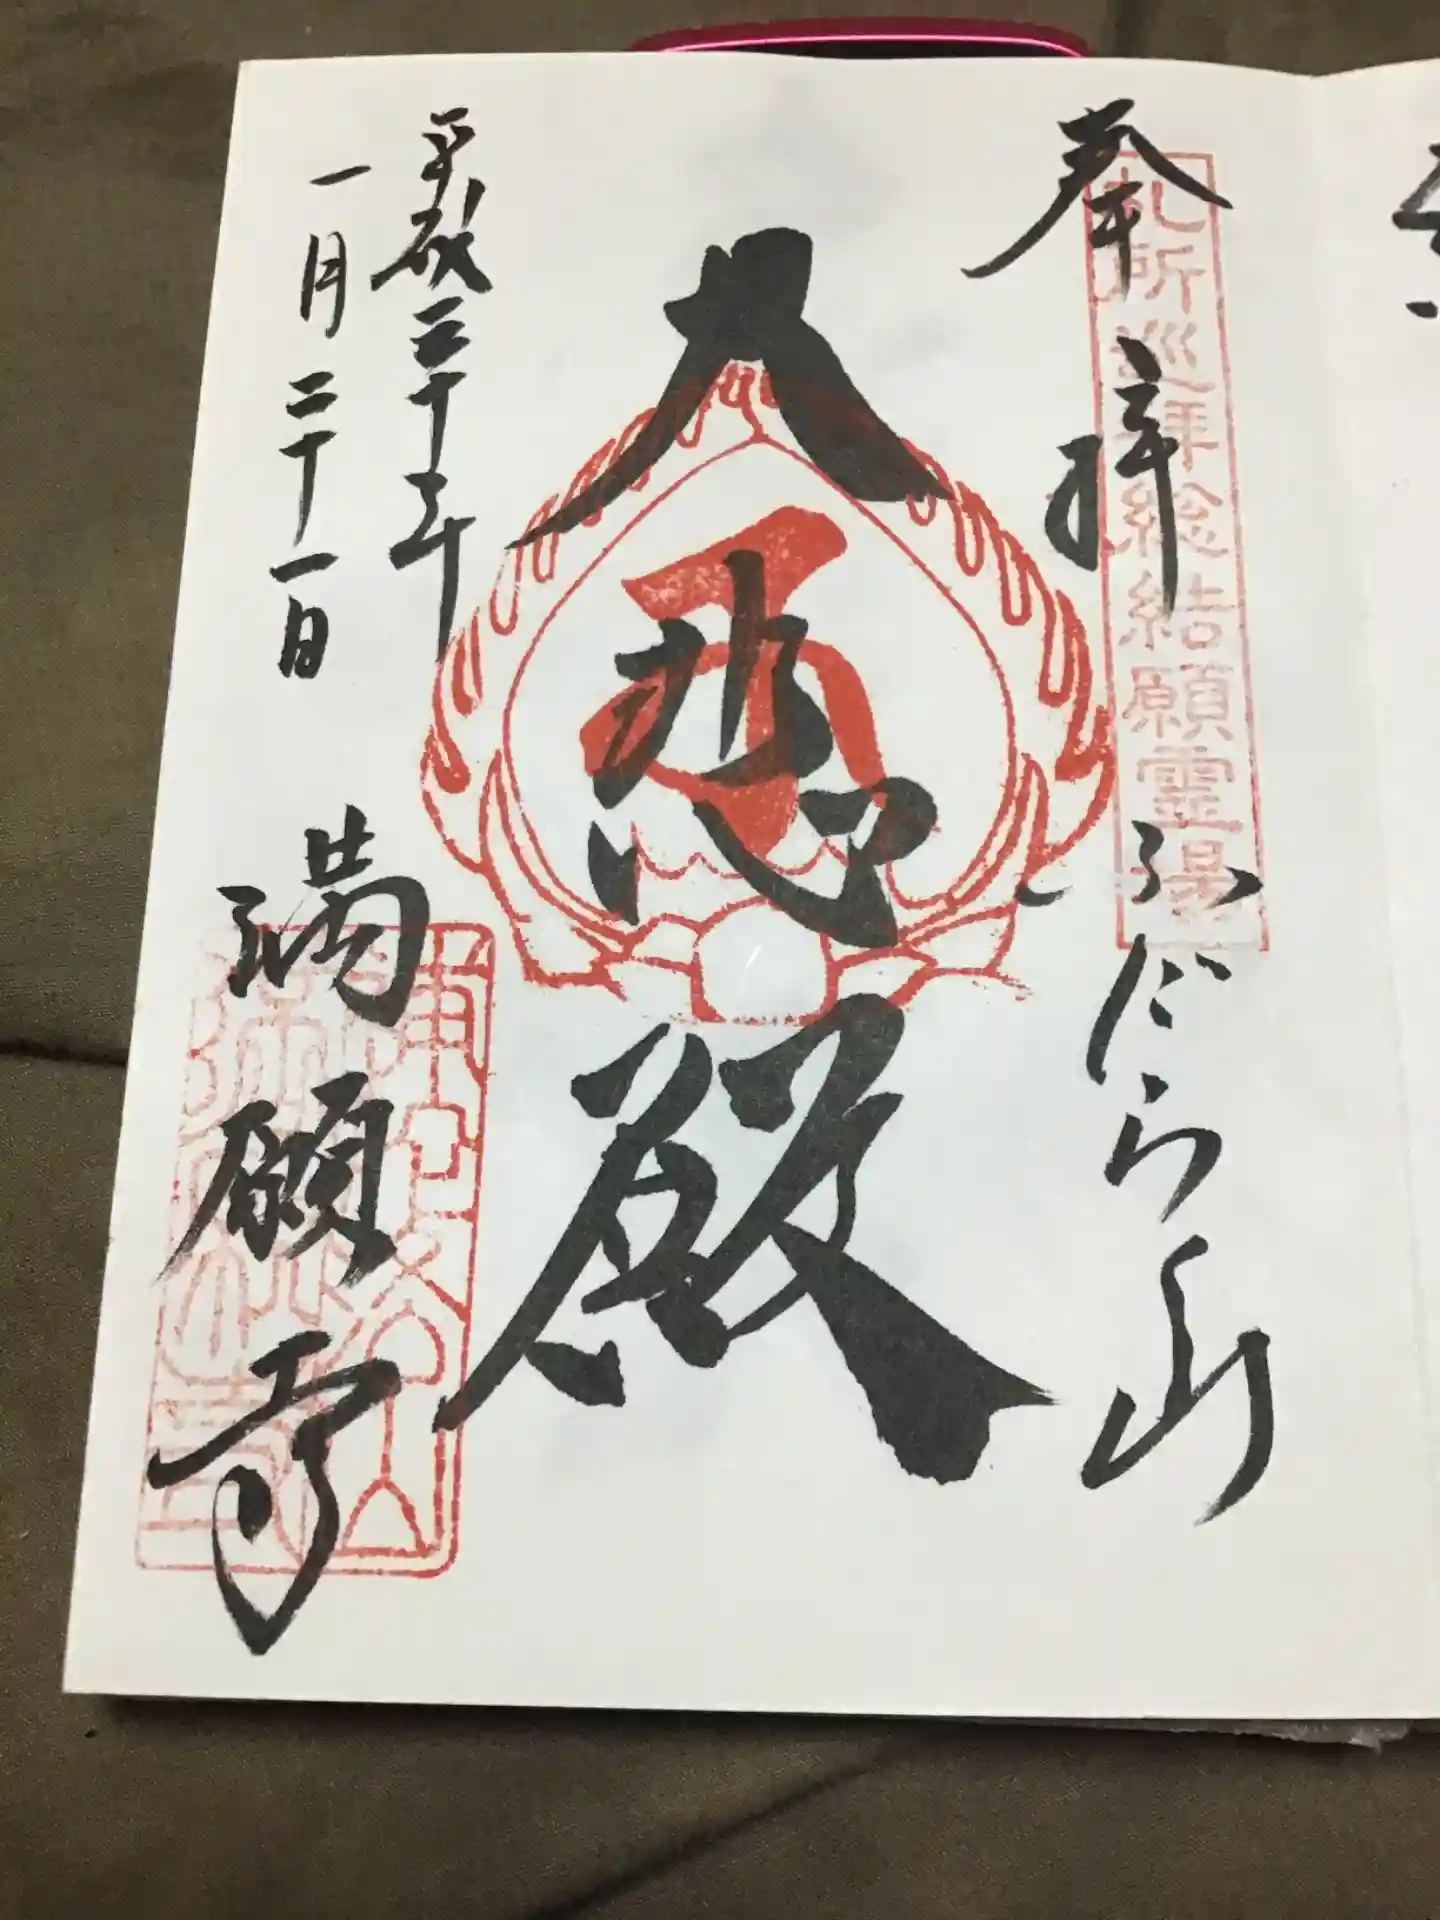 奉拝
ふだらく山
札所巡拝総結願霊場
大悲殿
平成三十年
一月二十一日
満願寺